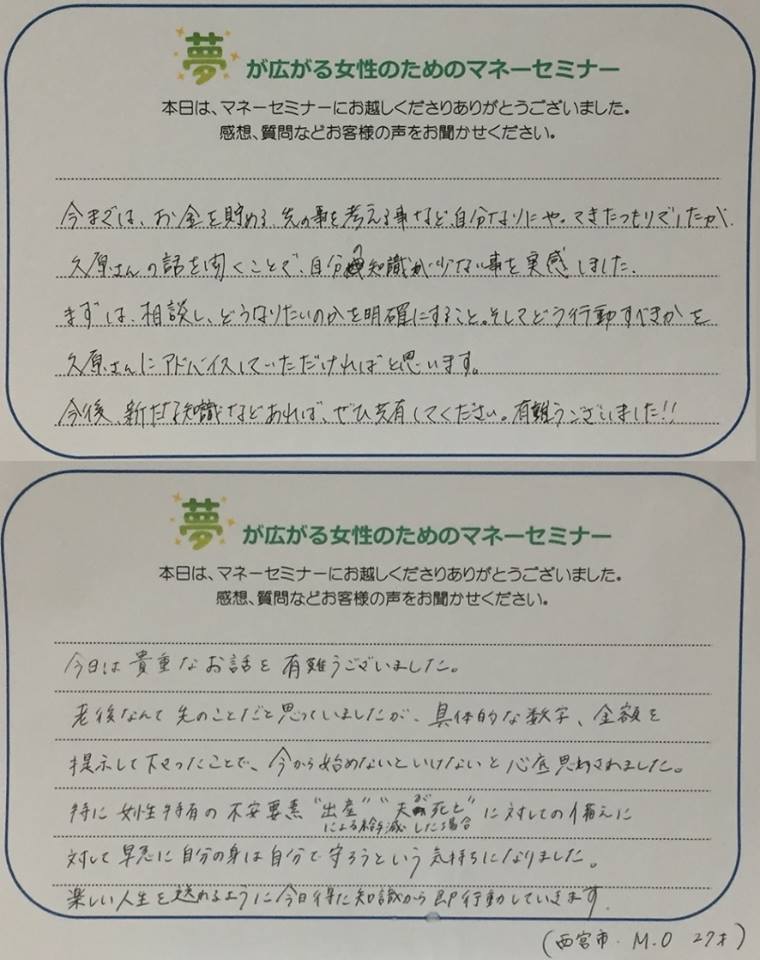 夢が広がる女性のためのマネーセミナー
本日は、マネーセミナーにお越しくださりありがとうございました。
感想、質問などお客様の声をお聞かせください。
今までは、お金を貯める、先の事を考える事など、自分なりにやってきたつもりでしたが、
久原さんの話を聞くことで、自分の知識が少ない事を実感しました。
まずは、相談し、どうなりたいのかを明確にすること。そしてどう行動すべきかを
久原さんにアドバイスしていただければと思います。
今後、新たな知識などあれば、ぜひ共有してください。有難うございました!!
夢が広がる女性のためのマネーセミナー
本日は、マネーセミナーにお越しくださりありがとうございました。
感想、質問などお客様の声をお聞かせください。
今日は貴重なお話を有難うございました。
老後なんて先のことだと思っていましたが、具体的な数字、金額を
提示して下さったことで、今から始めないといけないと心底思わされました。
特に女性特有の不安要素"出産""夫が死亡"に対しての備えに
による給与減 した場合
対して早急に自分の身は自分で守ろうという気持ちになりました。
楽しい人生を送れるように今日得た知識から即行動していきます。
(西宮市. M.O 27才)